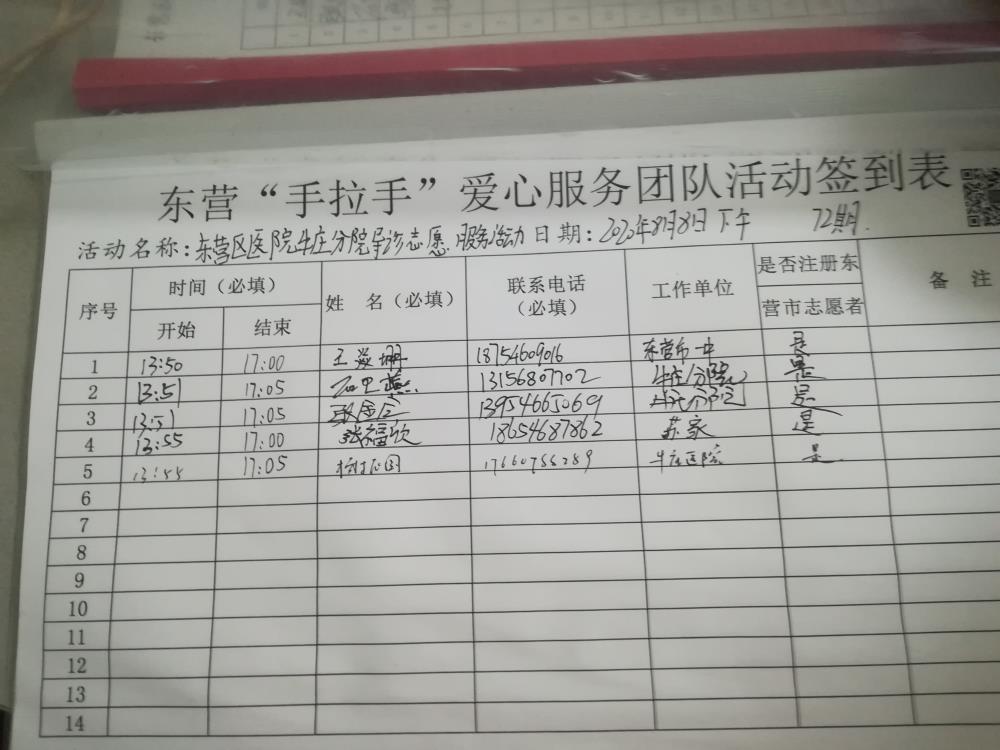 东营“手拉手”爱心服务团队活动签到表
活动名称：东营区医院牛庄分院导诊志愿服务活动 日期：2020年8月8日下午 72期
序号 时间（必填） 姓 名（必填） 联系电话（必填） 工作单位 是否注册东营市志愿者 备 注
开始 结束
1 13:50 17:00 王 18754609016 东营市一中 是
2 13:51 17:05 13156807702 牛庄分院 是
3 13:51 17:05 13954665069 分院 是
4 13:55 17:00 张福欣 18654687862 苏家 是
5 13:55 17:05 17660756289 牛庄医院 是
6
7
8
9
10
11
12
13
14